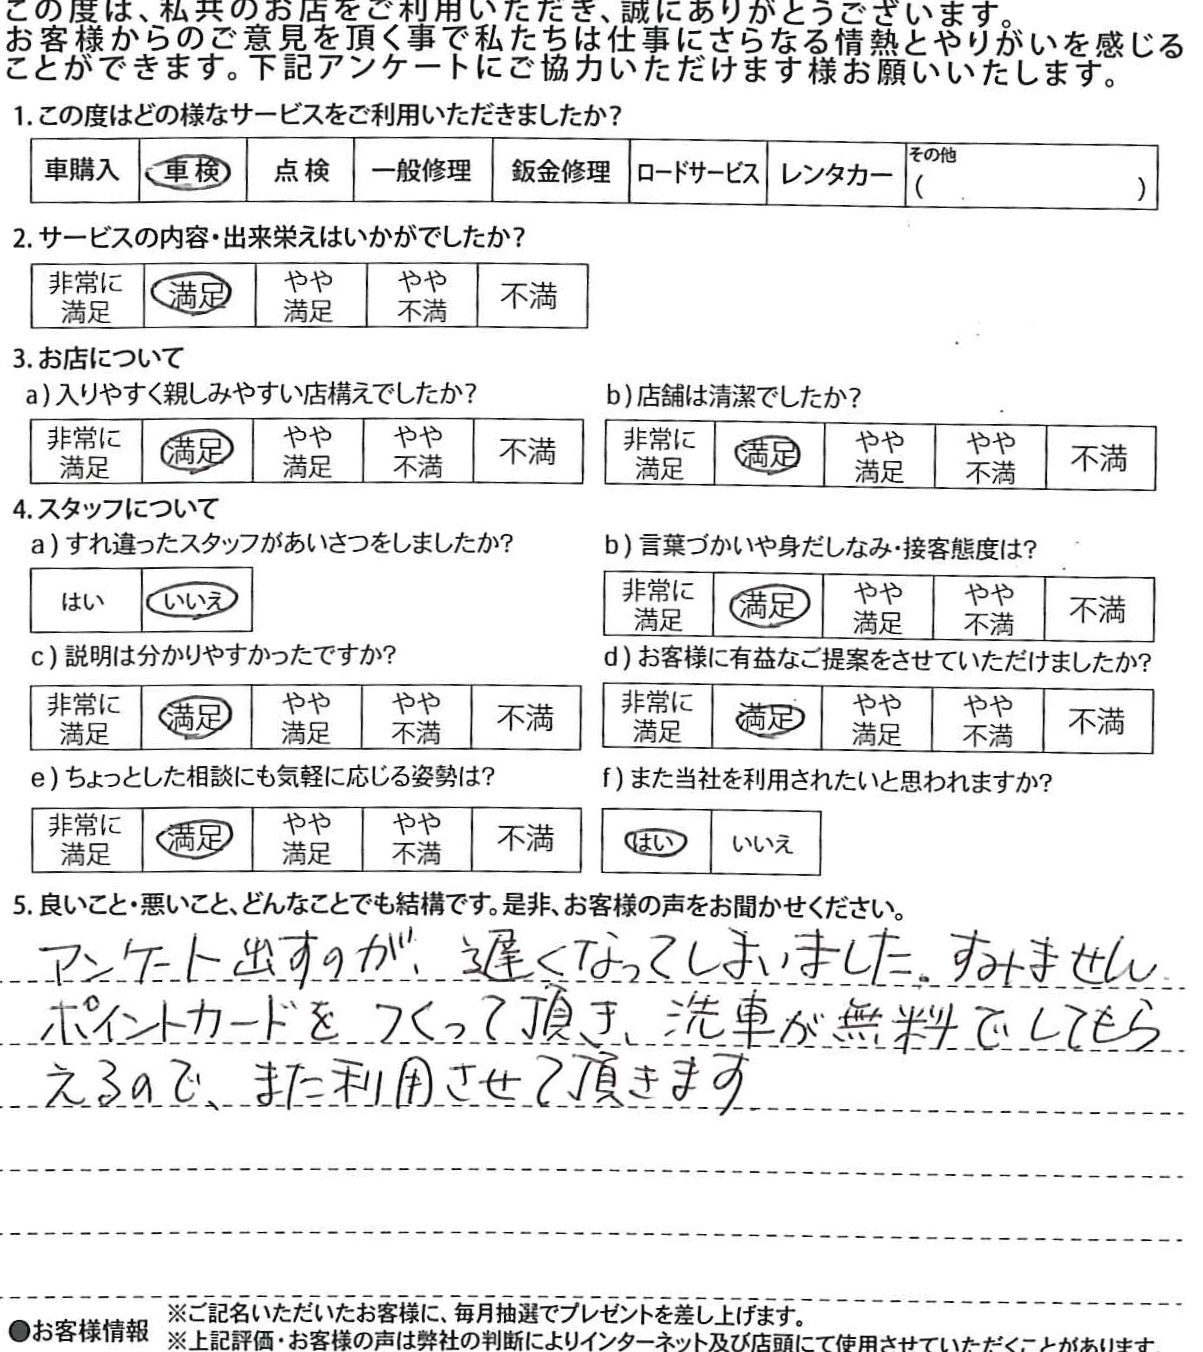 この度は、私共のお店をご利用いただき、誠にありがとうございます。
お客様からのご意見を頂く事で私たちは仕事にさらなる情熱とやりがいを感じる
ことができます。下記アンケートにご協力いただけます様お願いいたします。
1.この度はどの様なサービスをご利用いただきましたか?
車購入 車検 点検 一般修理 鈑金修理 ロードサービス レンタカー その他
( )
2.サービスの内容・出来栄えはいかがでしたか?
非常に満足 満足 やや満足 やや不満 不満
3.お店について
a)入りやすく親しみやすい店構えでしたか? b)店舗は清潔でしたか?
非常に満足 満足 やや満足 やや不満 不満 非常に満足 満足 やや満足 やや不満 不満
4.スタッフについて
a)すれ違ったスタッフがあいさつをしましたか? b)言葉づかいや身だしなみ・接客態度は?
はい いいえ 非常に満足 満足 やや満足 やや不満 不満
c)説明は分かりやすかったですか? d)お客様に有益なご提案をさせていただけましたか?
非常に満足 満足 やや満足 やや不満 不満 非常に満足 満足 やや満足 やや不満 不満
e)ちょっとした相談にも気軽に応じる姿勢は? f)また当社を利用されたいと思われますか?
非常に満足 満足 やや満足 やや不満 不満 はい いいえ
5.良いこと・悪いこと、どんなことでも結構です。是非、お客様の声をお聞かせください。
アンケート出すのが、遅くなってしまいました。すみません
ポイントカードをつくって頂き、洗車が無料でしてもら
えるので、また利用させて頂きます
●お客様情報 ※ご記名いただいたお客様に、毎月抽選でプレゼントを差し上げます。
※上記評価・お客様の声は弊社の判断によりインターネット及び店頭にて使用させていただくことがあります。